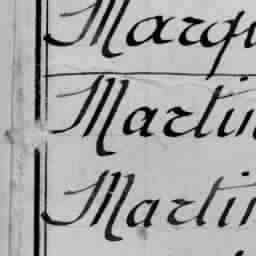 Marqu
Martin
Martin